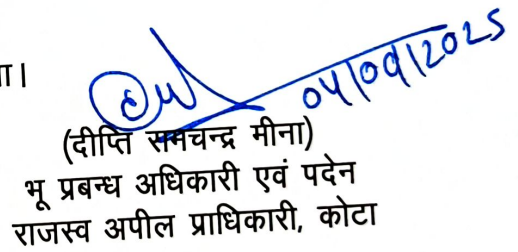 ा।
04/09/2025
(दीप्ति रामचन्द्र मीना)
भू प्रबन्ध अधिकारी एवं पदेन
राजस्व अपील प्राधिकारी, कोटा